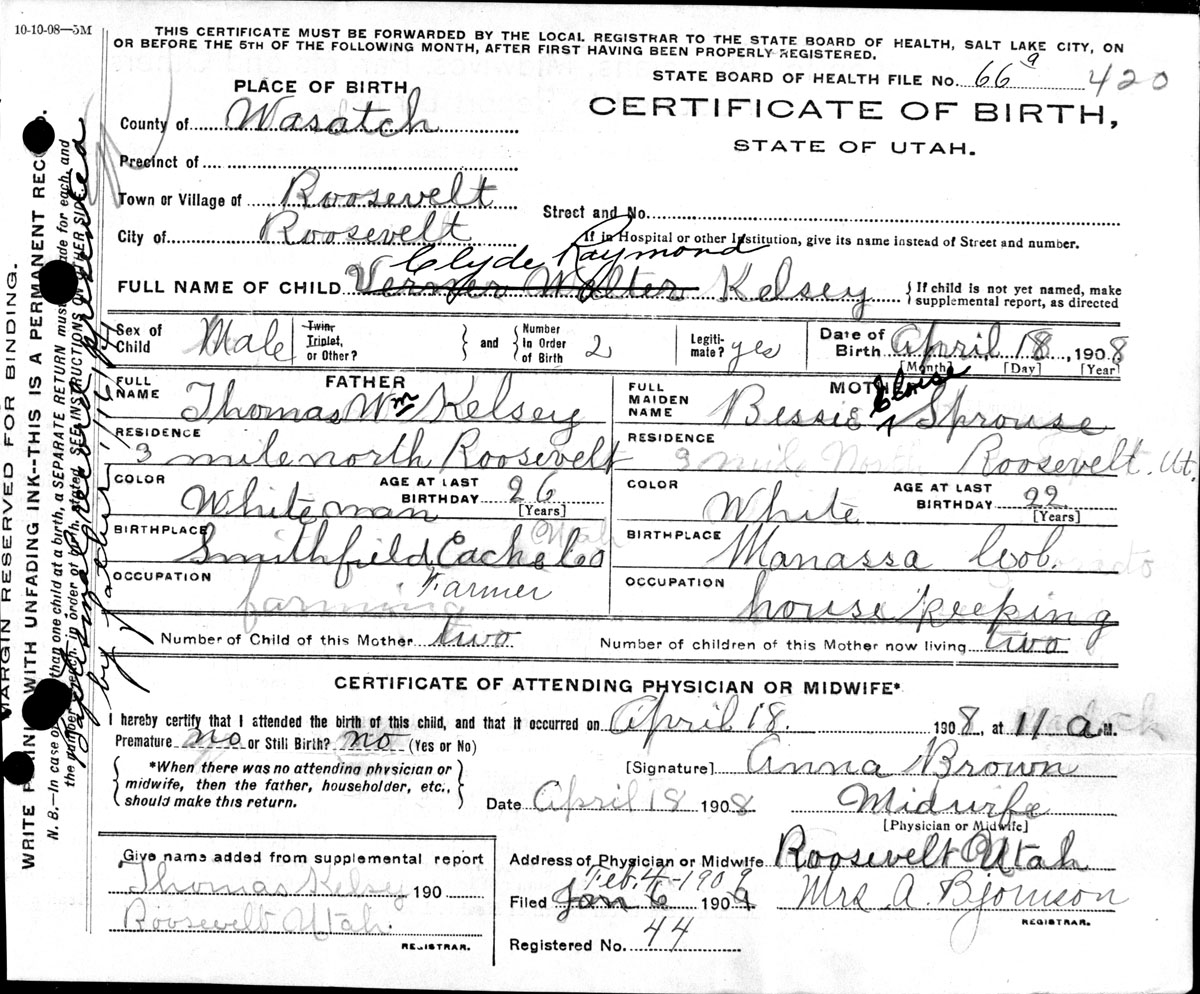 10-10-08—5M
THIS CERTIFICATE MUST BE FORWARDED BY THE LOCAL REGISTRAR TO THE STATE BOARD OF HEALTH, SALT LAKE CITY, ON
OR BEFORE THE 5TH OF THE FOLLOWING MONTH, AFTER FIRST HAVING BEEN PROPERLY REGISTERED.
STATE BOARD OF HEALTH FILE No. 66 a 420
PLACE OF BIRTH
CERTIFICATE OF BIRTH,
STATE OF UTAH.
County of Wasatch
Precinct of
Town or Village of Roosevelt
Street and No.
City of Roosevelt
If in Hospital or other Institution, give its name instead of Street and number.
Clyde Raymond
FULL NAME OF CHILD Verner Walter Kelsey
If child is not yet named, make
supplemental report, as directed
Sex of Child Male
Twin, Triplet, or Other? and Number In Order of Birth 2
Legiti-mate? yes
Date of Birth April 18, 1908
[Month] [Day] [Year]
FATHER
FULL NAME Thomas Wm Kelsey
RESIDENCE 3 mile north Roosevelt
COLOR White man AGE AT LAST BIRTHDAY 26 [Years]
BIRTHPLACE Smithfield Cache Co Utah
OCCUPATION Farmer
farming
MOTHER
FULL MAIDEN NAME Bessie Sprouse
RESIDENCE 3 mile North Roosevelt. Ut.
COLOR White AGE AT LAST BIRTHDAY 22 [Years]
BIRTHPLACE Manassa
OCCUPATION house keeping
Number of Child of this Mother two Number of children of this Mother now living two
CERTIFICATE OF ATTENDING PHYSICIAN OR MIDWIFE*
I hereby certify that I attended the birth of this child, and that it occurred on April 18. 1908, at 11 a M.
Premature no or Still Birth? no (Yes or No)
*When there was no attending physician or
midwife, then the father, householder, etc.,
should make this return.
[Signature] Anna Brown
Date April 18 1908 Midwife
[Physician or Midwife]
Give name added from supplemental report
Thomas Kelsey 190
Roosevelt Utah.
REGISTRAR.
Address of Physician or Midwife Roosevelt Utah
Feb. 4-1909
Filed Jan 6 1909 Mrs A. Bjornson
REGISTRAR.
Registered No. 44
MARGIN RESERVED FOR BINDING.
WRITE PLAINLY WITH UNFADING INK--THIS IS A PERMANENT RECORD.
N. B.—In case of than one child at a birth, a SEPARATE RETURN must made for each, and
the number each, in order of birth, stated. SEE INSTRUCTIONS ON OTHER SIDE.
by father